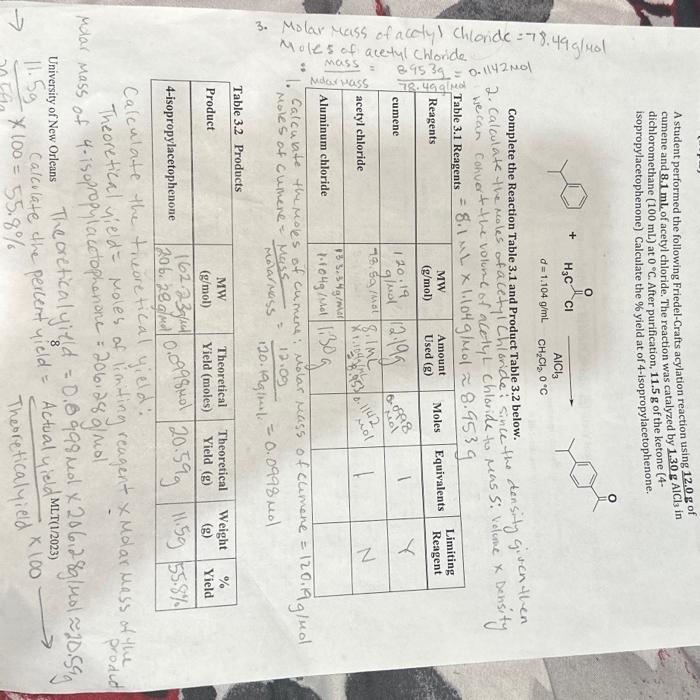 A student performed the following Friedel-Crafts acylation reaction using 12.0 g of
cumene and 8.1 mL of acetyl chloride. The reaction was catalyzed by 1.30 g AlCl3 in
dichloromethane (100 mL) at 0 °C. After purification, 11.5 g of the ketone (4-
isopropylacetophenone) Calculate the % yield at of 4-isopropylacetophenone.
+
O
H3C Cl
d = 1.104 g/mL
AlCl3
CH2Cl2, 0 °C
O
Complete the Reaction Table 3.1 and Product Table 3.2 below.
2. Calculate the moles of acetyl Chloride: since the density given then
we can convert the volume of acetyl chloride to mass: Volume x Density
Table 3.1 Reagents = 8.1 mL x 1.104g/mol ≈ 8.953g
3. Molar Mass of acetyl Chloride = 78.49g/mol
Moles of acetyl Chloride
= mass / Molar Mass = 8.953g / 78.49g/mol = 0.1142 mol
Reagents MW (g/mol) Amount Used (g) Moles Equivalents Limiting Reagent
cumene 120.19 g/mol 12.19g 0.0998 mol 1 Y
acetyl chloride 78.5g/mol 8.1mL 0.1142 mol 1 N
Aluminum chloride 133.34g/mol 1.104g/mol 1.30g
1. Calculate the moles of cumene: Molar mass of cumene = 120.19g/mol
Moles of cumene = Mass / molar mass = 12.0g / 120.19g/mol = 0.0998mol
Table 3.2 Products
Product MW (g/mol) Theoretical Yield (moles) Theoretical Yield (g) Weight (g) % Yield
4-isopropylacetophenone 162.23g/mol 206.28g/mol 0.0998mol 20.59g 11.5g 55.8%
Calculate the theoretical yield:
Theoretical yield = moles of limiting reagent x Molar Mass of the product
Molar Mass of 4-isopropylacetophenone = 206.28g/mol
Theoretical yield = 0.0998mol x 206.28g/mol ≈ 20.59g
University of New Orleans 8 MLT(1/2023)
Calculate the percent yield = Actual yield / Theoretical yield x 100 →
→ 11.5g / 20.59g x 100 = 55.8%